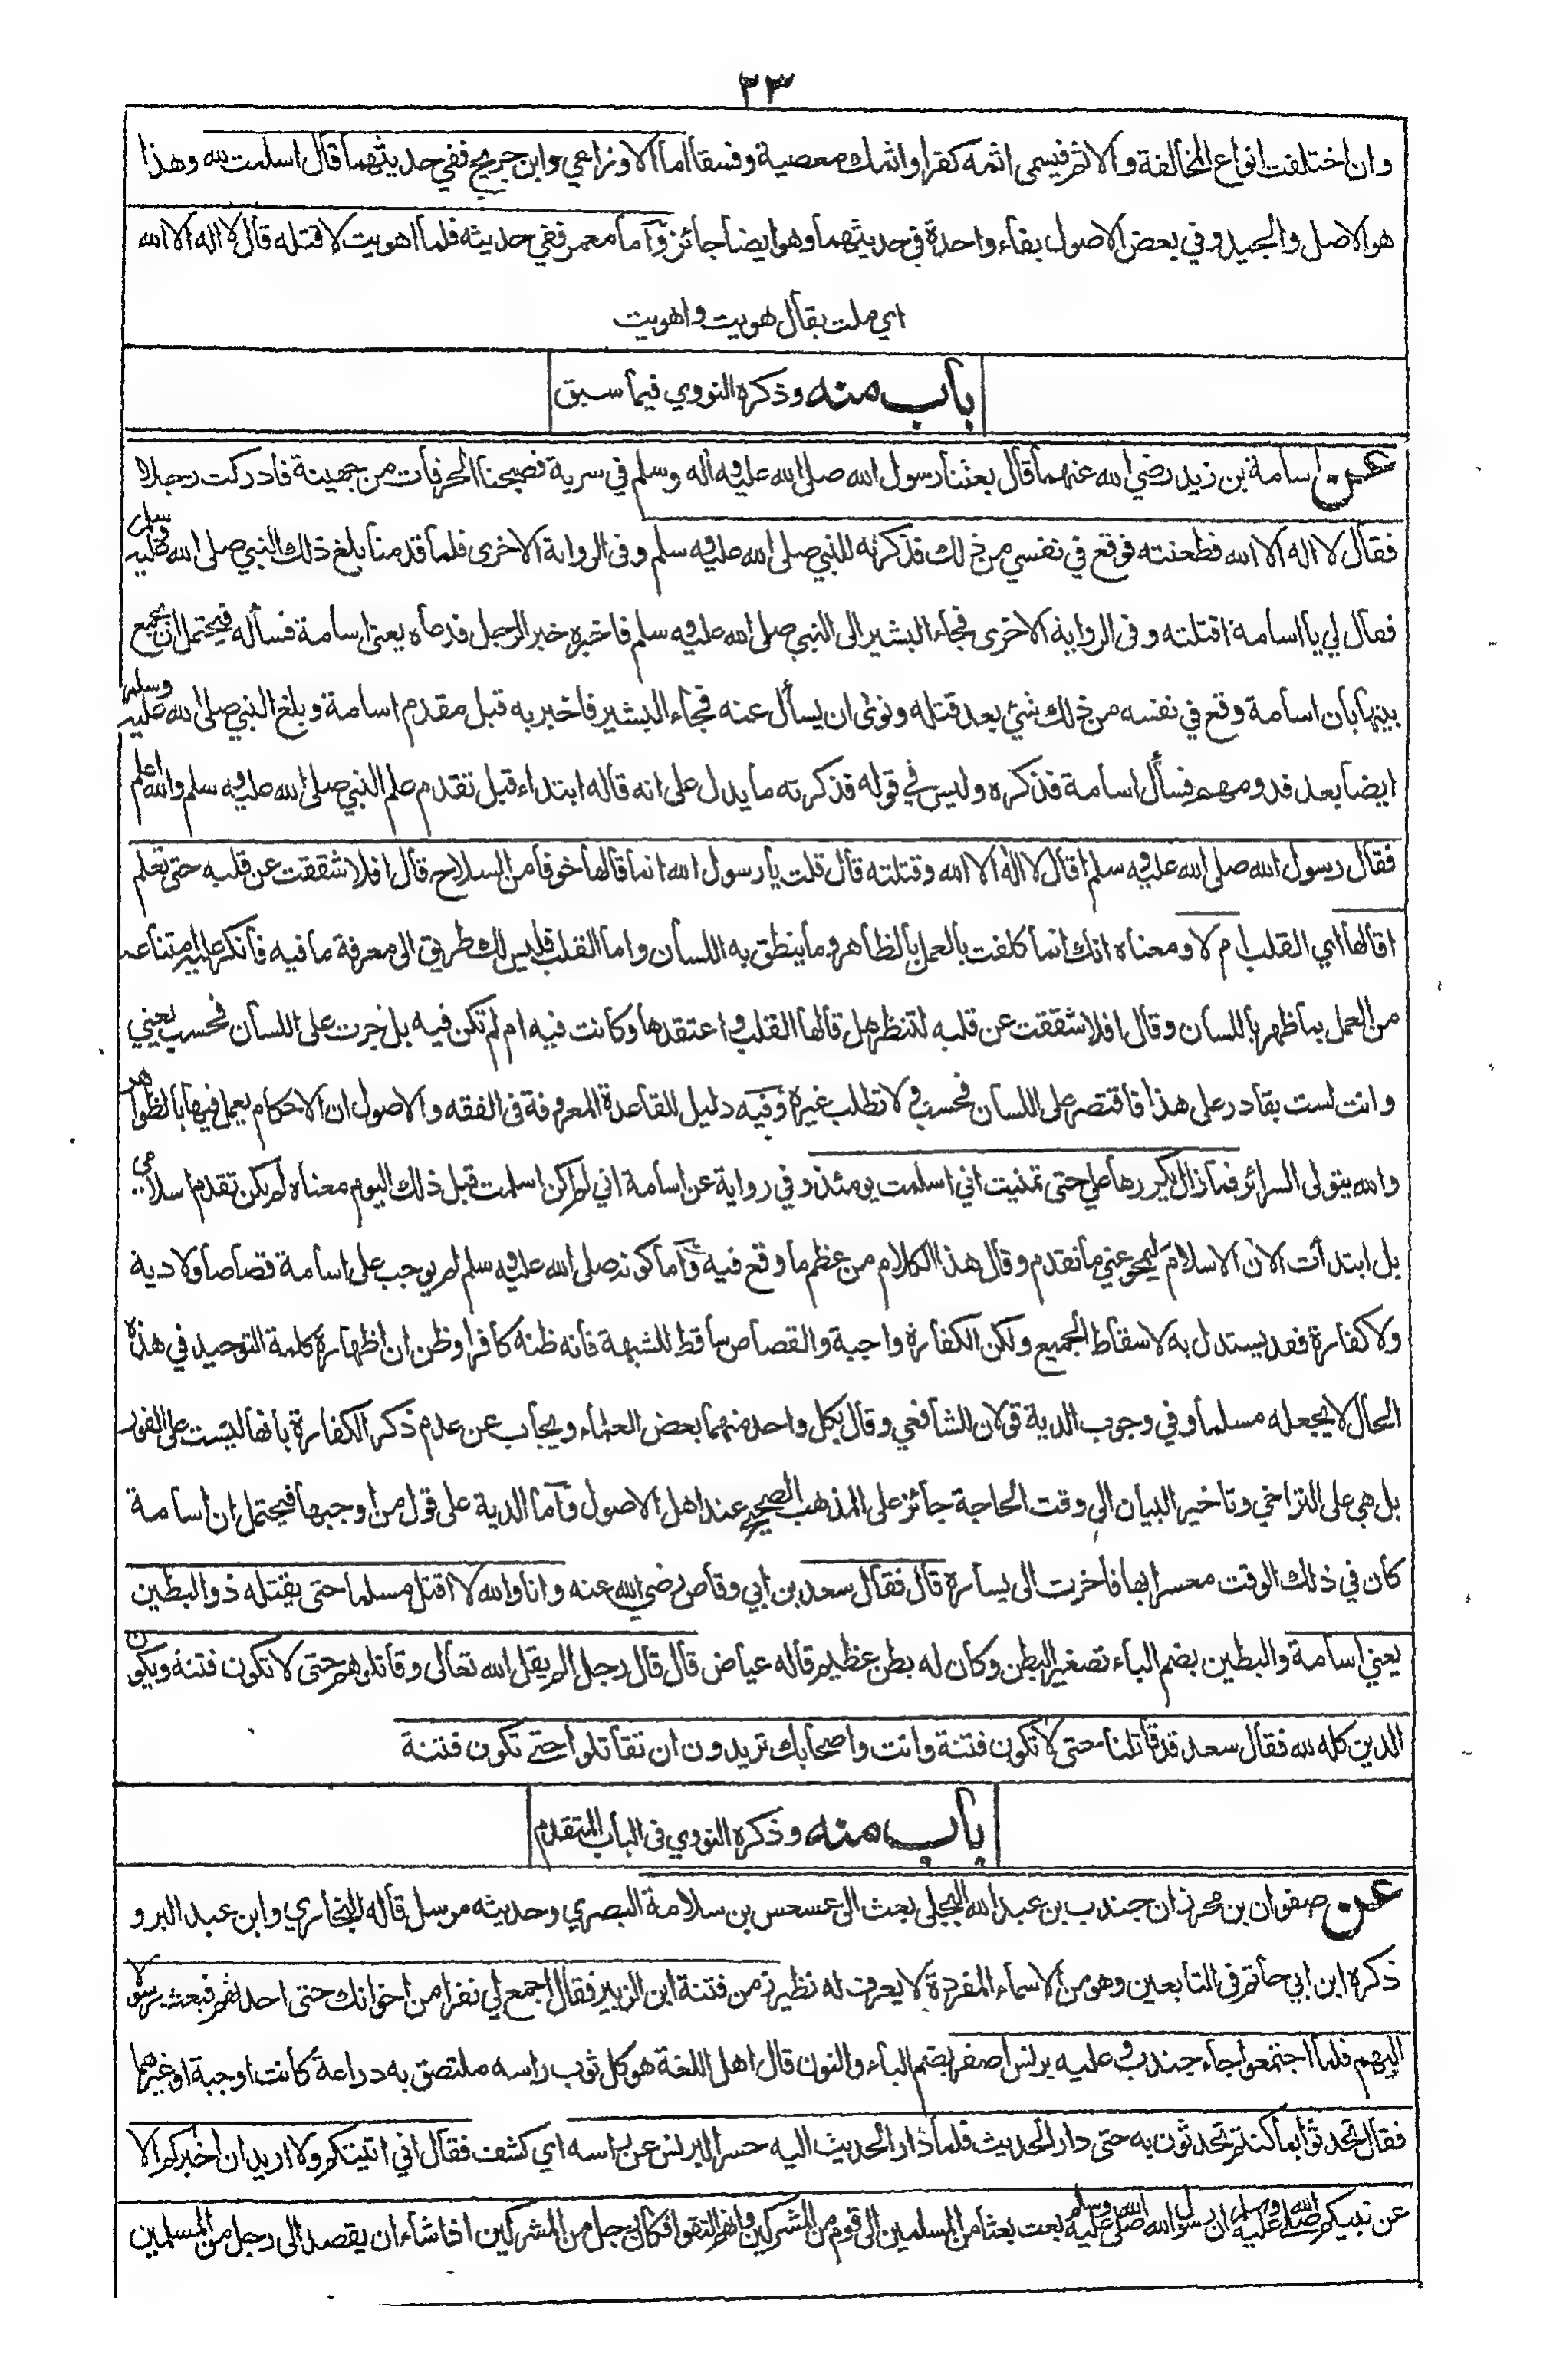 ٢٣
وان اختلفت انواع المخالفة والاثم فيسمى اثمه كفرا واثمك معصية وفسقا اما الاوزاعي وابن جريج ففي حديثهما قال اسلمت لله وهذا
هو الاصل والجيد وفي بعض الاصول بفاء واحدة في حديثهما وهو ايضا جائز وآما معمر ففي حديثه فلما اهويت لاقتله قال لا اله الا الله
اي ملت يقال هويت واهويت
باب منه وذكره النووي فيما سبق
عن اسامة بن زيد رضي الله عنهما قال بعثنا رسول الله صلى الله عليه وآله وسلم في سرية فصبحنا الحرقات من جهينة فادركت رجلا
فقال لا اله الا الله فطعنته فوقع في نفسي من ذلك فذكرته للنبي صلى الله عليه وسلم وفى الرواية الاخرى فلما قدمنا بلغ ذلك النبي صلى الله عليه وسلم
فقال لي يا اسامة اقتلته وفى الرواية الاخرى فجاء البشير الى النبي صلى الله عليه وسلم فاخبره خبر الرجل فدعاه يعني اسامة فسأله فيحتمل ان يجمع
بينها بان اسامة وقع في نفسه من ذلك شئ بعد قتله ونوى ان يسأل عنه فجاء البشير فاخبر به قبل مقدم اسامة وبلغ النبي صلى الله عليه وسلم
ايضا بعد قدومهم فسأل اسامة فذكره وليس في قوله فذكرته ما يدل على انه قاله ابتداء قبل تقدم علم النبي صلى الله عليه وسلم والله اعلم
فقال رسول الله صلى الله عليه وسلم اقال لا اله الا الله وقتلته قال قلت يا رسول الله انما قالها خوفا من السلاح قال افلا شققت عن قلبه حتى تعلم
اقالها اي القلب ام لا ومعناه انك انما كلفت بالعمل بالظاهر وما ينطق به اللسان واما القلب فليس لك طريق الى معرفة ما فيه فانكر عليه امتناعه
من العمل بما ظهر باللسان وقال افلا شققت عن قلبه لتنظر هل قالها القلب واعتقدها وكانت فيه ام لم تكن فيه بل جرت على اللسان فحسب يعني
وانت لست بقادر على هذا فاقتصر على اللسان فحسب ولا تطلب غيره وفيه دليل للقاعدة المعروفة فى الفقه والاصول ان الاحكام يعمل فيها بالظواهر
والله يتولى السرائر فما زال يكررها علي حتى تمنيت اني اسلمت يومئذ وفي رواية عن اسامة اني لم اكن اسلمت قبل ذلك اليوم معناه لم يكن تقدم اسلامي
بل ابتدأت الآن الاسلام ليمحو عني ما تقدم وقال هذا الكلام من عظم ما وقع فيه وآما كونه صلى الله عليه وسلم لم يوجب على اسامة قصاصا ولا دية
ولا كفارة فقد يستدل به لاسقاط الجميع ولكن الكفارة واجبة والقصاص ساقط للشبهة فانه ظنه كافرا وظن ان اظهاره كلمة التوحيد في هذه
الحال لا يجعله مسلما وفي وجوب الدية قولان للشافعي وقال بكل واحد منهما بعض العلماء ويجاب عن عدم ذكر الكفارة بانها ليست على الفور
بل هي على التراخي وتاخير البيان الى وقت الحاجة جائز على المذهب الصحيح عند اهل الاصول وآما الدية على قول من اوجبها فيحتمل ان اسامة
كان في ذلك الوقت معسرا بها فاخرت الى يساره قال فقال سعد بن ابي وقاص رضي الله عنه وانا والله لا اقتل مسلما حتى يقتله ذو البطين
يعني اسامة والبطين بضم الباء تصغير البطن وكان له بطن عظيم قاله عياض قال قال رجل الم يقل الله تعالى وقاتلوهم حتى لا تكون فتنة ويكون
الدين كله لله فقال سعد قد قاتلنا حتى لا تكون فتنة وانت واصحابك تريدون ان تقاتلوا حتى تكون فتنة
باب منه وذكره النووي فى الباب المتقدم
عن صفوان بن محرز ان جندب بن عبد الله البجلي بعث الى عسعس بن سلامة البصري وحديثه مرسل قاله البخاري وابن عبد البر و
ذكره ابن ابي حاتم فى التابعين وهو من الاسماء المفردة لا يعرف له نظير زمن فتنة ابن الزبير فقال اجمع لي نفرا من اخوانك حتى احدثهم فبعث رسولا
اليهم فلما اجتمعوا جاء جندب وعليه برنس اصفر بضم الباء والنون قال اهل اللغة هو كل ثوب راسه ملتصق به دراعة كانت او جبة او غيرهما
فقال تحدثوا بما كنتم تحدثون به حتى دار الحديث فلما دار الحديث اليه حسر البرنس عن راسه اي كشف فقال اني اتيتكم ولا اريد ان اخبركم الا
عن نبيكم صلى الله عليه وسلم ان رسول الله صلى الله عليه وسلم بعث بعثا من المسلمين الى قوم من المشركين وانهم التقوا فكان رجل من المشركين اذا شاء ان يقصد الى رجل من المسلمين